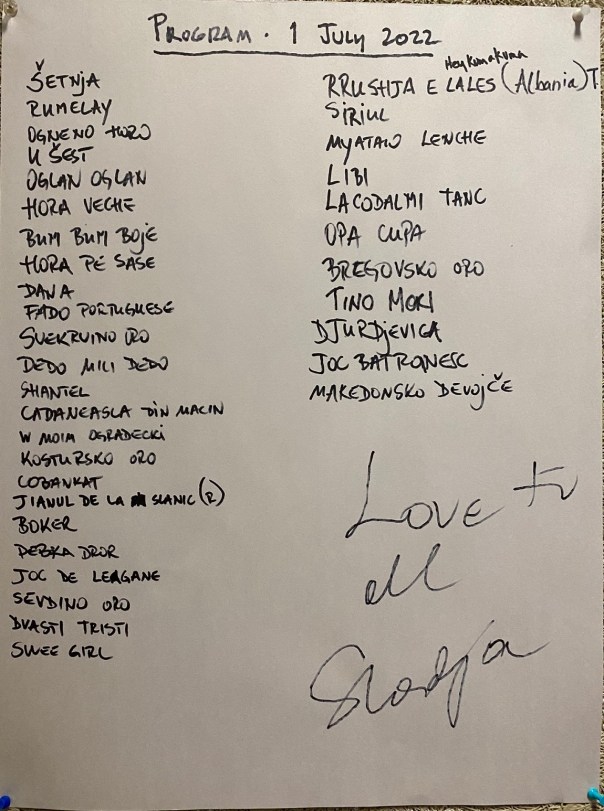 PROGRAM · 1 JULY 2022
ŠETNJA
RUMELAY
OGNENO HORO
U ŠEST
OGLAN OGLAN
HORA VECHE
BUM BUM BOJE
HORA PE SASE
DANA
FADO PORTUGUESE
SVEKRVINO ORO
DEDO MILI DEDO
SHANTEL
CADANEASCA DIN MACIN
W MOIM OGRADECKI
KOSTURSKO ORO
COBANKAT
JIANUL DE LA SLANIC (R)
BOKER
DEBKA DROR
JOC DE LEAGANE
SEVDINO ORO
DVASTI TRISTI
SWEE GIRL
RRUSHJA E LALES (Albania) T
SIRIUL
MYATALO LENCHE
LIBI
LACODALMI TANC
OPA CUPA
BREGOVSKO ORO
TINO MORI
DJURDJEVICA
JOC BATRANESC
MAKEDONSKO DEVOJČE
LOVE to
all
Sladja